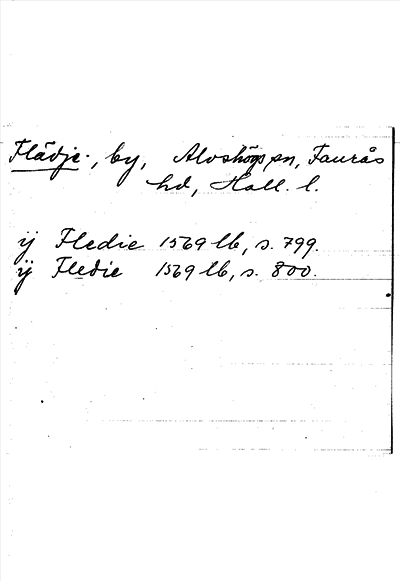 Flädje, by, Alvshögs sn, Faurås
hd, Hall. l.
ij Fledie 1569 lb, s. 799.
ij Fledie 1569 lb, s. 800.